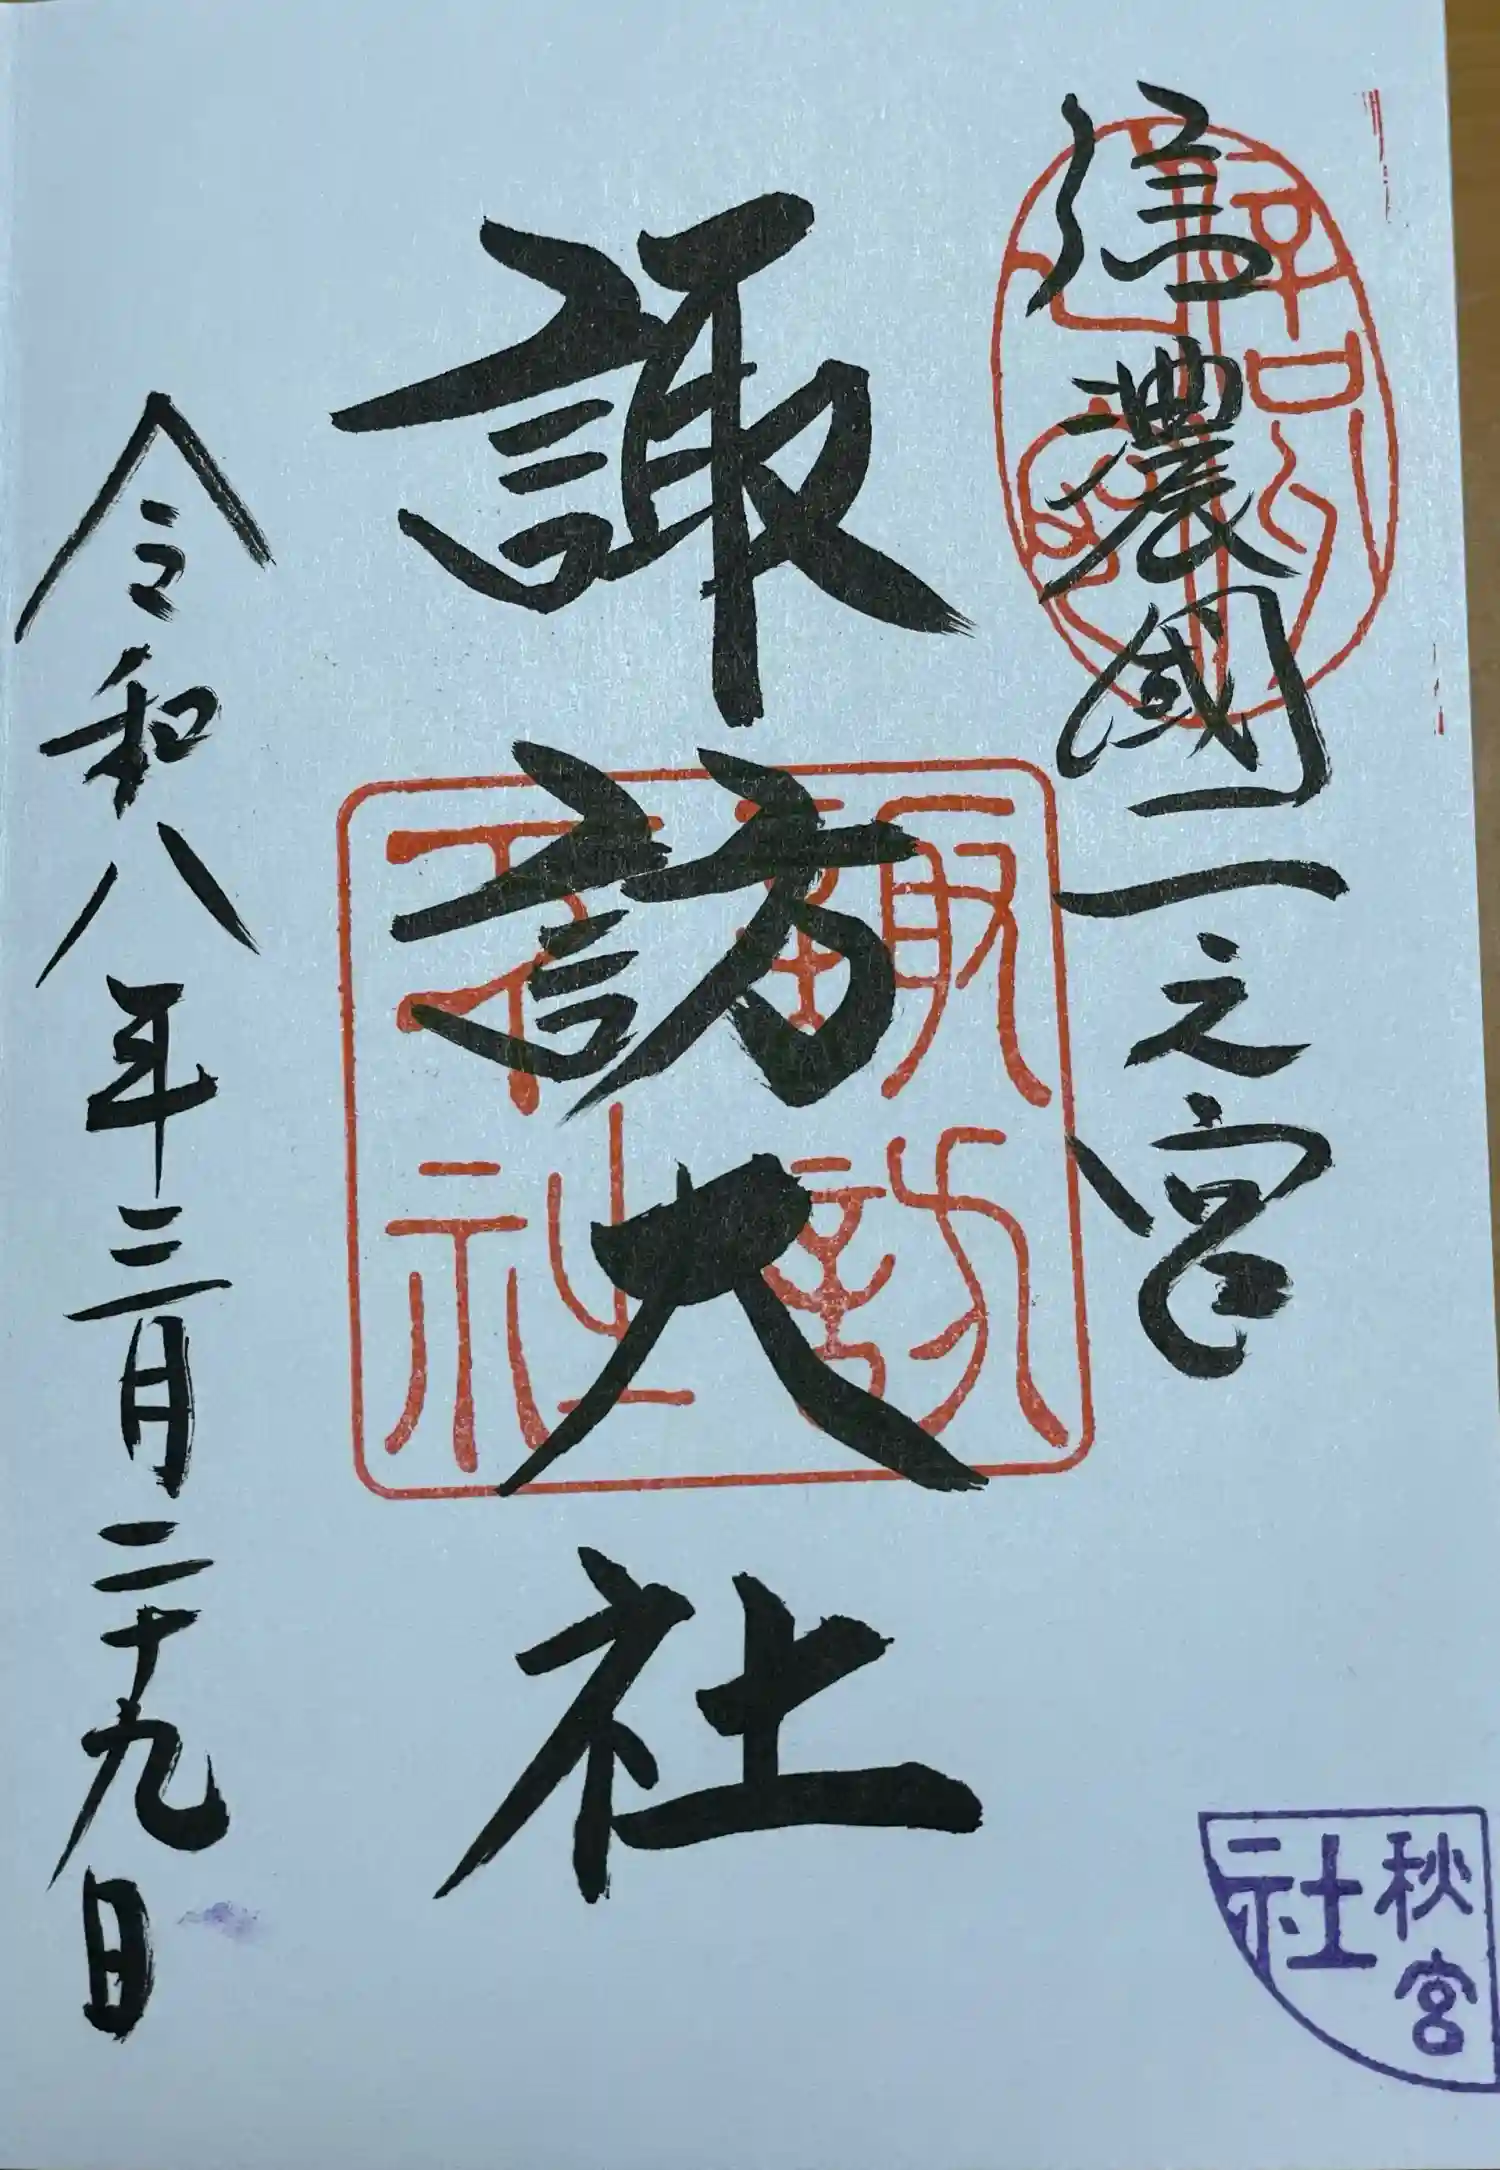 信濃國一之宮
諏訪大社
令和八年三月二十九日
諏訪
社
秋宮
社